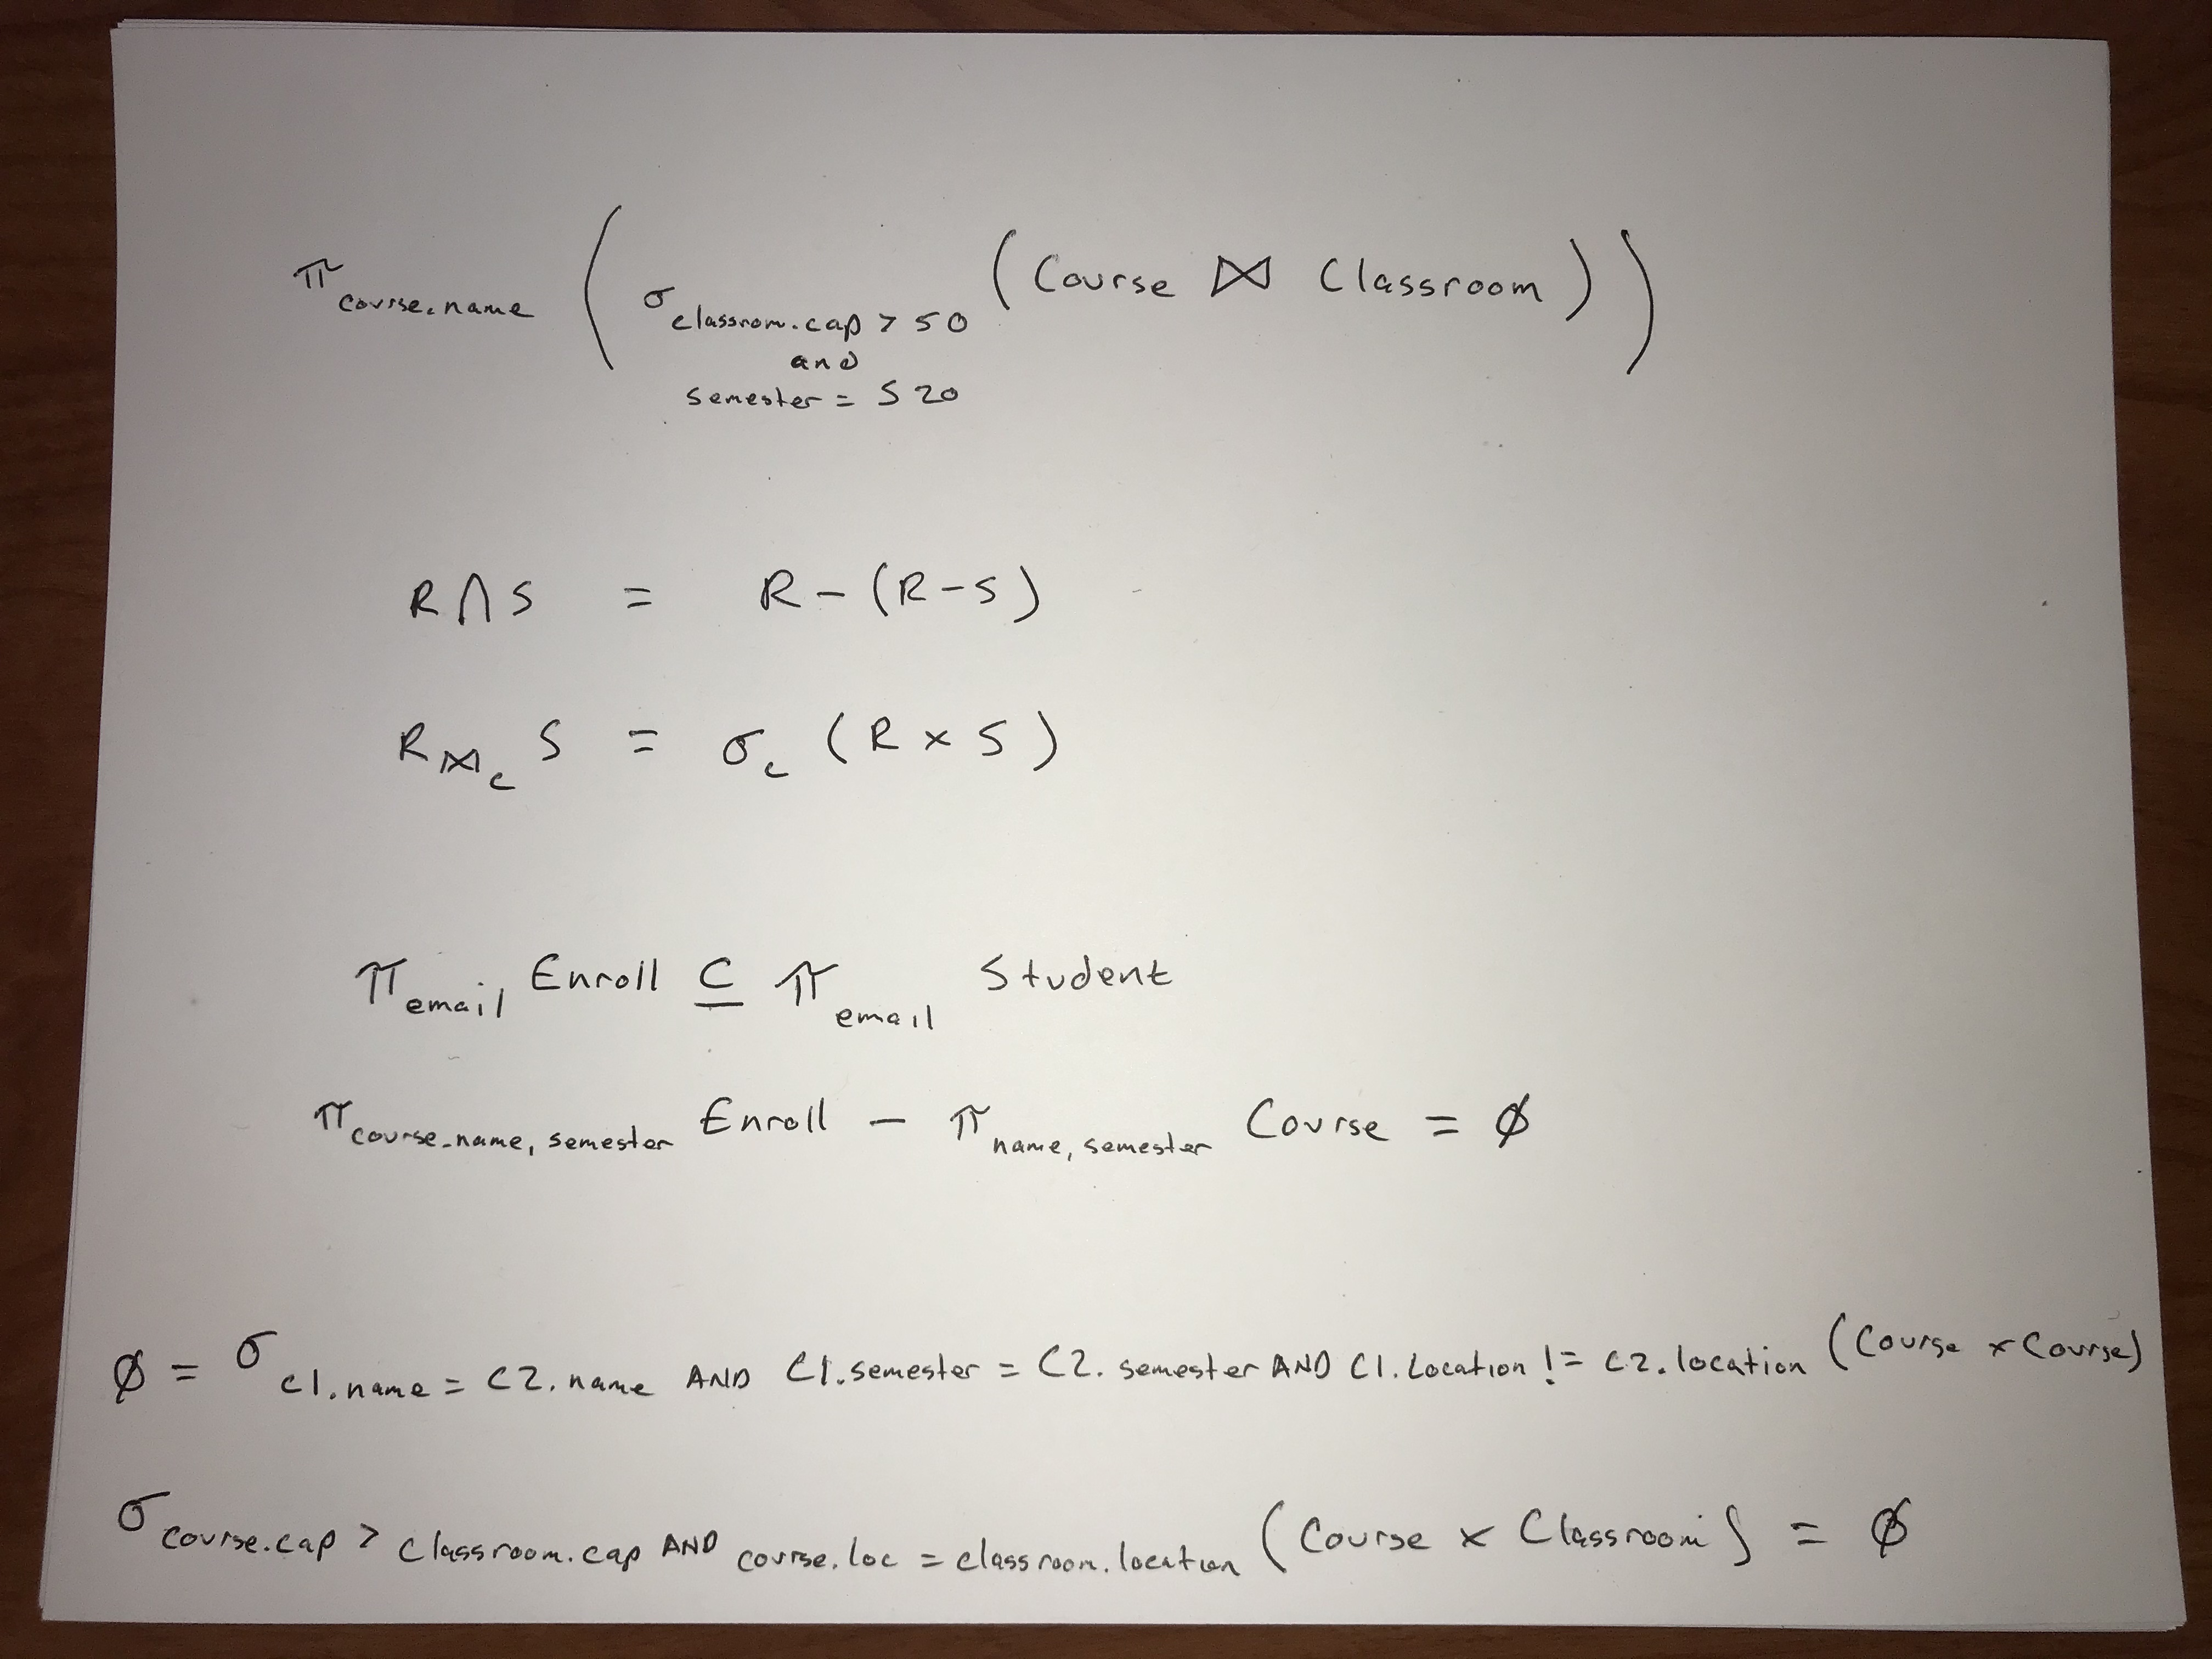 π course.name ( σ classroom.cap > 50 and semester = S20 (Course ⋈ Classroom))
R ∩ S = R - (R - S)
R ⋈c S = σc (R x S)
π email, Enroll ⊆ π email Student
π course_name, semester Enroll - π name, semester Course = ∅
∅ = σ c1.name = c2.name AND C1.semester = C2.semester AND C1.Location != c2.location (Course x Course)
σ course.cap > classroom.cap AND course.loc = classroom.location (Course x Classroom) = ∅